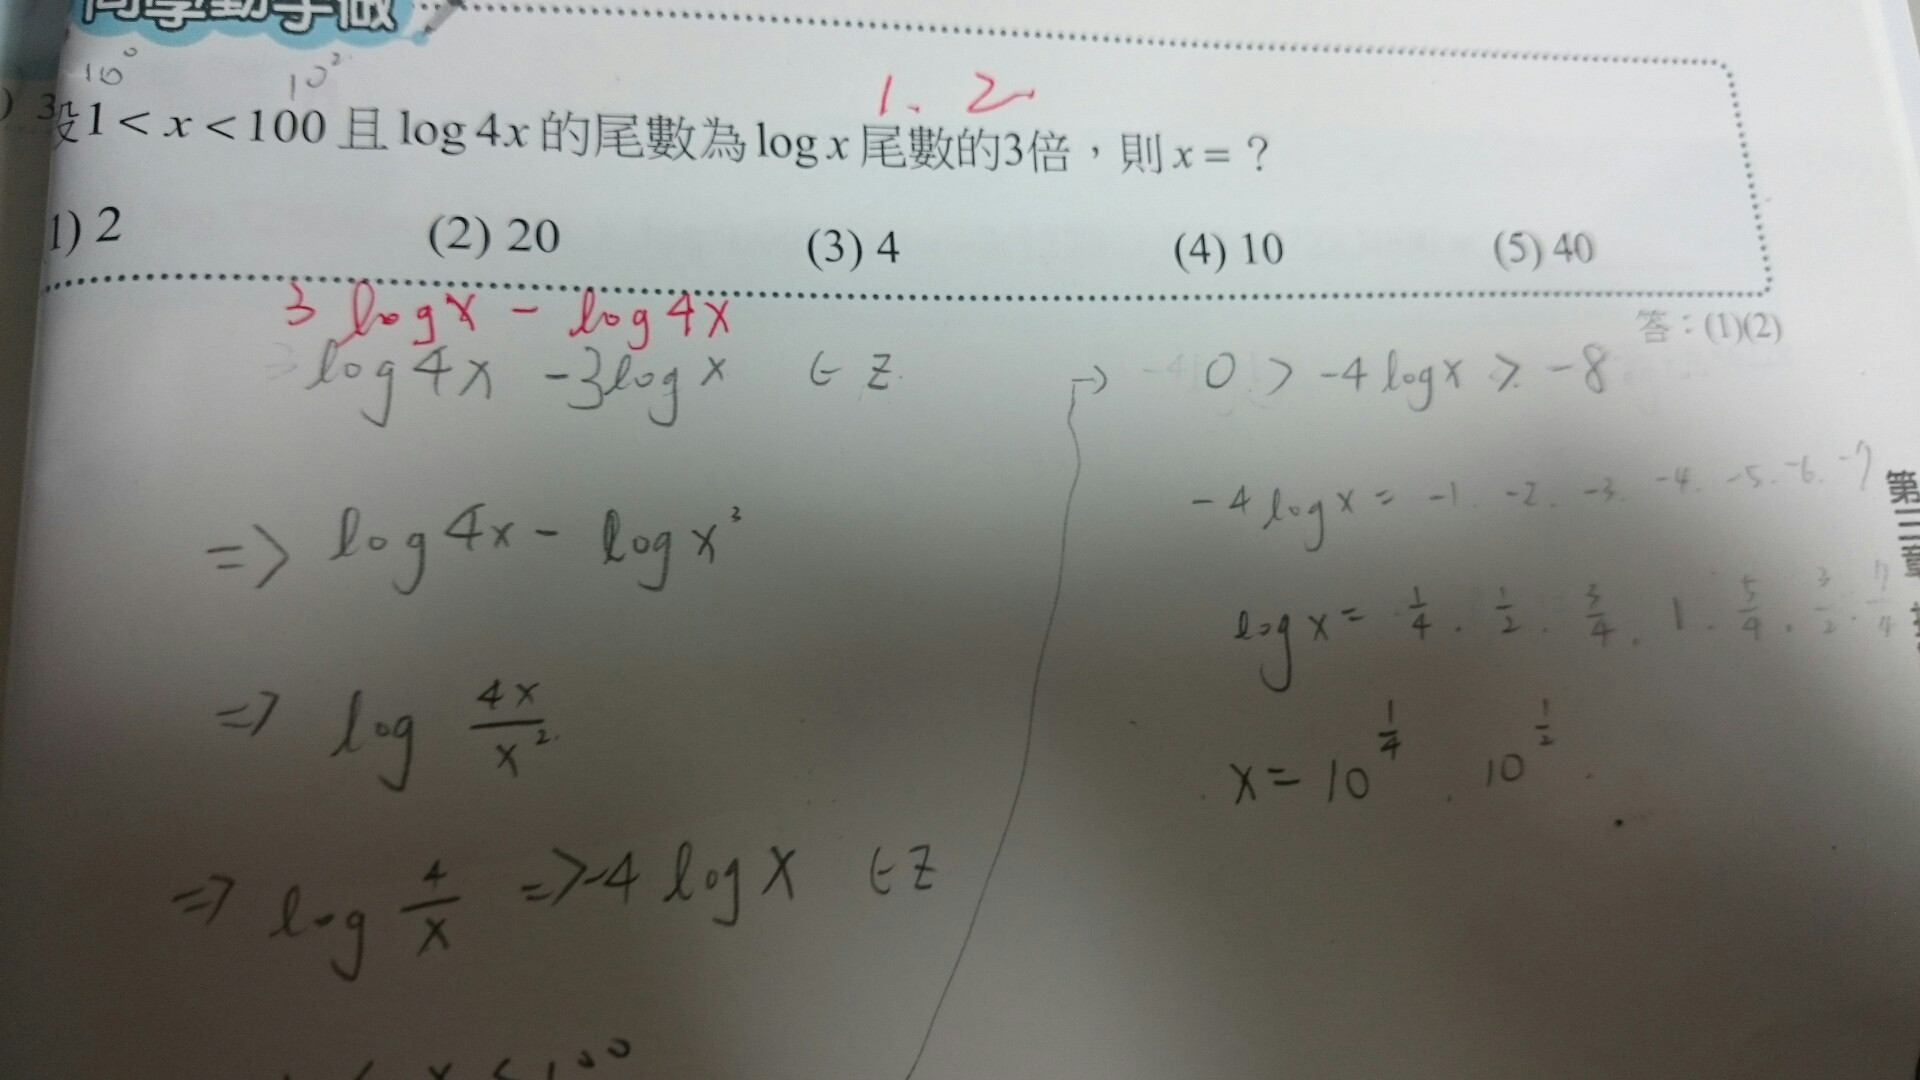 同學動手做
10⁰ 10²
1. 2
設1 < x < 100 且 log 4x 的尾數為 log x 尾數的3倍，則 x = ？
1) 2 (2) 20 (3) 4 (4) 10 (5) 40
答：(1)(2)
3 log x - log 4x
log 4x - 3log x ∈ Z
=> log 4x - log x³
=> log 4x/x²
=> log 4/x => -4 log x ∈ Z
x < 100
→ 0 > -4 log x > -8
-4 log x = -1. -2. -3. -4. -5. -6. -7
log x = 1/4. 1/2. 3/4. 1. 5/4. 3/2. 7/4
x = 10^(1/4). 10^(1/2).
第三章